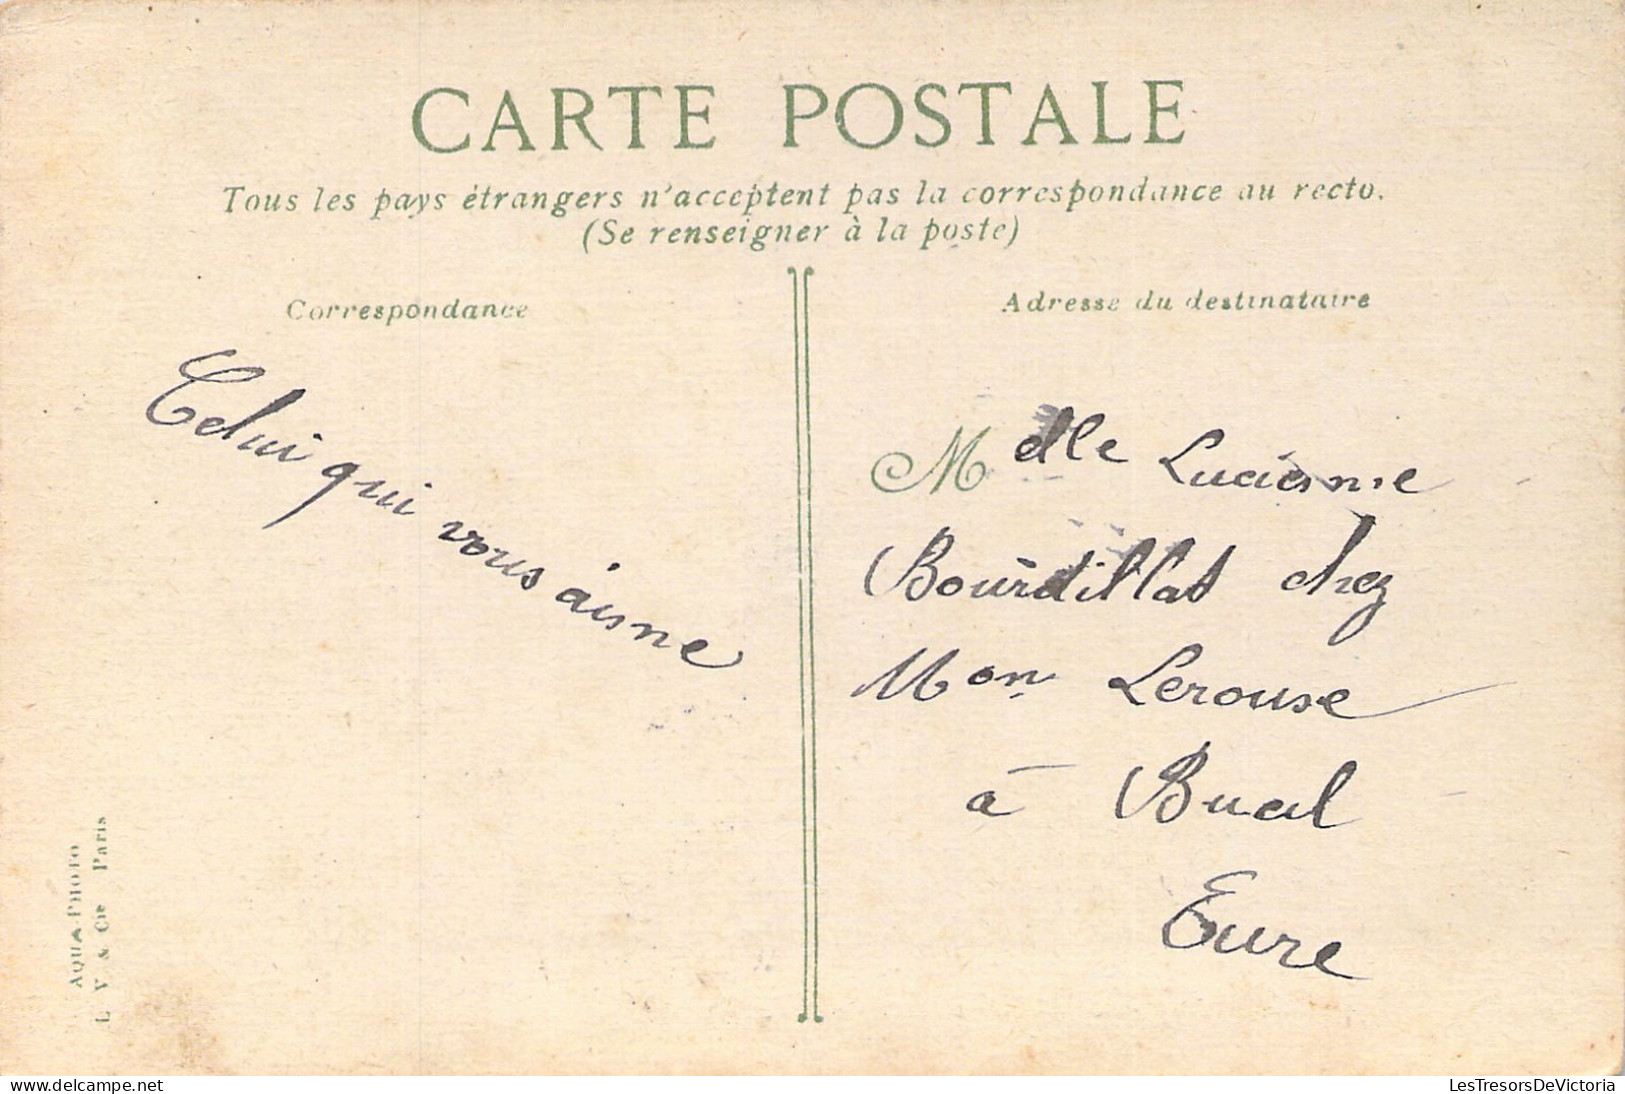 CARTE POSTALE
Tous les pays étrangers n'acceptent pas la correspondance au recto.
(Se renseigner à la poste)
Correspondance
Adresse du destinataire
Celui qui vous aisne
Melle Lucienne
Bourdillat chez
Mon Lerouse
à Bueil
Eure
AQUA-PHOTO
L V & Cie Paris
www.delcampe.net
LesTresorsDeVictoria